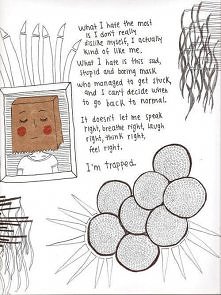 What I hate the most
is I don't really
dislike myself, I actually
kind of like me.
What I hate is this sad,
stupid and boring mask
who managed to get stuck
and I can't decide when
to go back to normal.
It doesn't let me speak
right, breathe right, laugh
right, think right,
feel right.
I'm trapped.